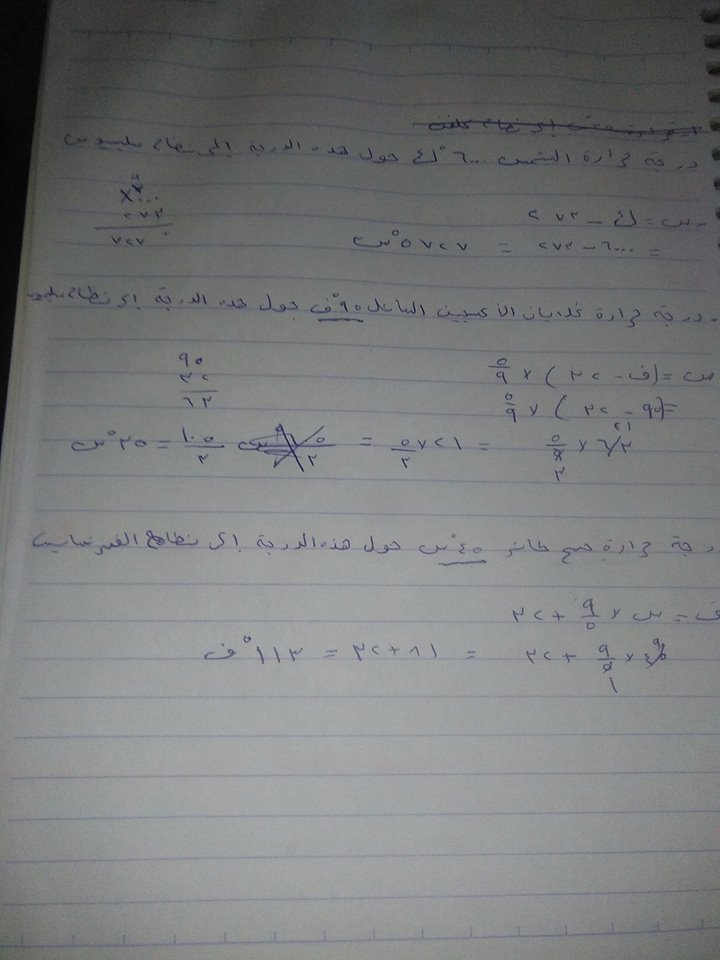 درجة حرارة الشمس ٦٠٠٠ °ك حول هذه الدرجة إلى نظام سليسيوس
س = ك − ٢٧٣
= ٦٠٠٠ − ٢٧٣ = ٥٧٢٧ °س
٢٧٣
- درجة حرارة غليان الأكسجين السائل ٩٥ °ف حول هذه الدرجة إلى نظام
س = (ف − ٣٢) × ٥/٩
= (٩٥ − ٣٢) × ٥/٩
٩٥
٣٢
٦٣
٦٣ × ٥/٩ = ٢١ × ٥/٣ = ١٠٥/٣ = ٣٥ °س
درجة حرارة جسم ٤٥ °س حول هذه الدرجة إلى نظام الفهرنهايت
ف = س × ٩/٥ + ٣٢
٤٥ × ٩/٥ + ٣٢ = ٨١ + ٣٢ = ١١٣ °ف